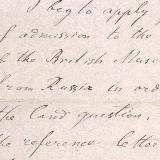 I beg to apply
of admission to the
the British Muse
from Russia in ord
the land question.
the reference letter